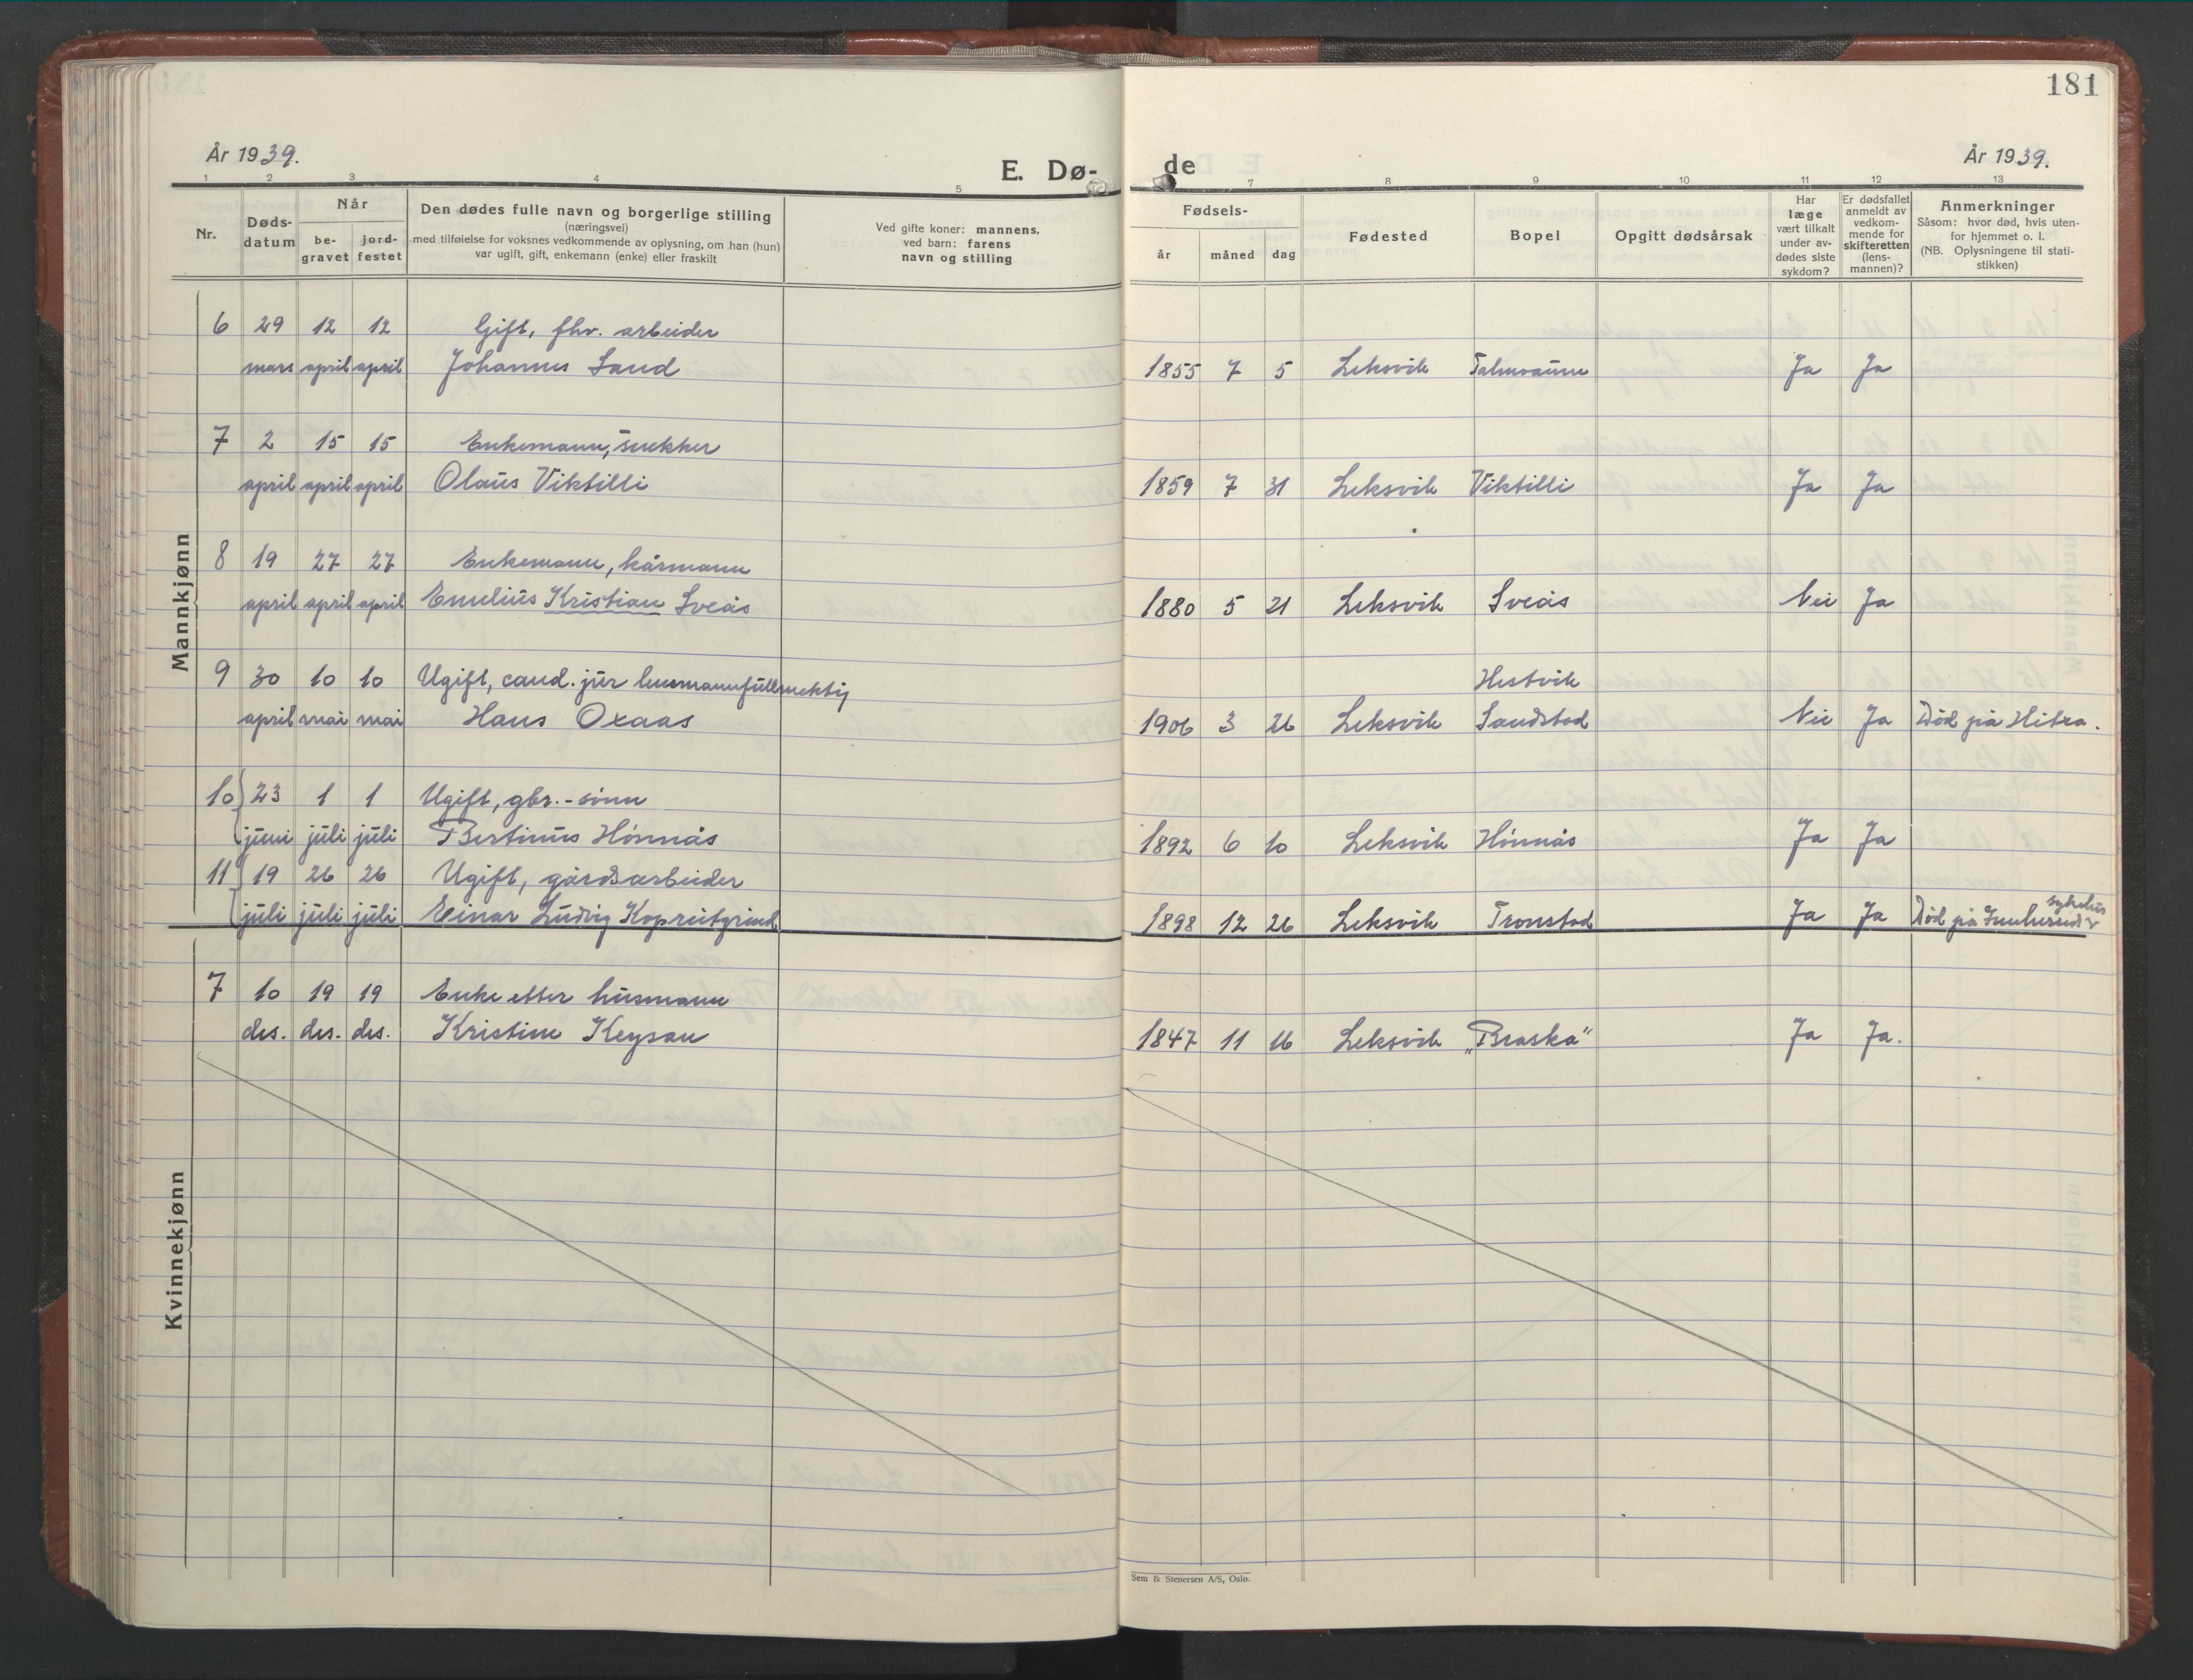 181
År 1939.
E. Dø-
de
År 1939.
1 2 3 4 5 7 8 9 10 11 12 13
Nr.
Døds-
datum
Når
be-
gravet
jord-
festet
Den dødes fulle navn og borgerlige stilling
(næringsvei)
med tilføielse for voksnes vedkommende av oplysning, om han (hun)
var ugift, gift, enkemann (enke) eller fraskilt
Ved gifte koner: mannens,
ved barn: farens
navn og stilling
Fødsels-
år
måned
dag
Fødested
Bopel
Opgitt dødsårsak
Har
læge
vært tilkalt
under av-
dødes siste
sykdom?
Er dødsfallet
anmeldt av
vedkom-
mende for
skifteretten
(lens-
mannen)?
Anmerkninger
Såsom: hvor død, hvis uten-
for hjemmet o. l.
(NB. Oplysningene til stati-
stikken)
Mannkjønn
6 29 12 12 Gift, fhv. arbeider
mars april april Johannes Sand 1855 7 5 Leksvik Ja Ja
7 2 15 15 Enkemann, snekker
april april april Olaus Viktilli 1859 7 31 Leksvik Viktilli Ja Ja
8 19 27 27 Enkemann, kårmann
april april april Emelius Kristian Sveås 1880 5 21 Leksvik Sveås Nei Ja
9 30 10 10 Ugift, cand. jur lensmannfullmektig Hestvik
april mai mai Hans Oxaas 1906 3 26 Leksvik Sandstad Nei Ja Død på Hitra.
10 23 1 1 Ugift, gbr.-sønn
juni juli juli Bertinus Hønnås 1892 6 10 Leksvik Hønnås Ja Ja
11 19 26 26 Ugift, gårdsarbeider
sykehus
juli juli juli Einar Ludvig Kopreitgrind 1898 12 26 Leksvik Tronstad Ja Ja Død på Innherred
Kvinnekjønn
7 10 19 19 Enke etter husmann
des. des. des. Kristine Keysan 1847 11 16 Leksvik „Braska“ Ja Ja.
Sem & Stenersen A/S, Oslo.